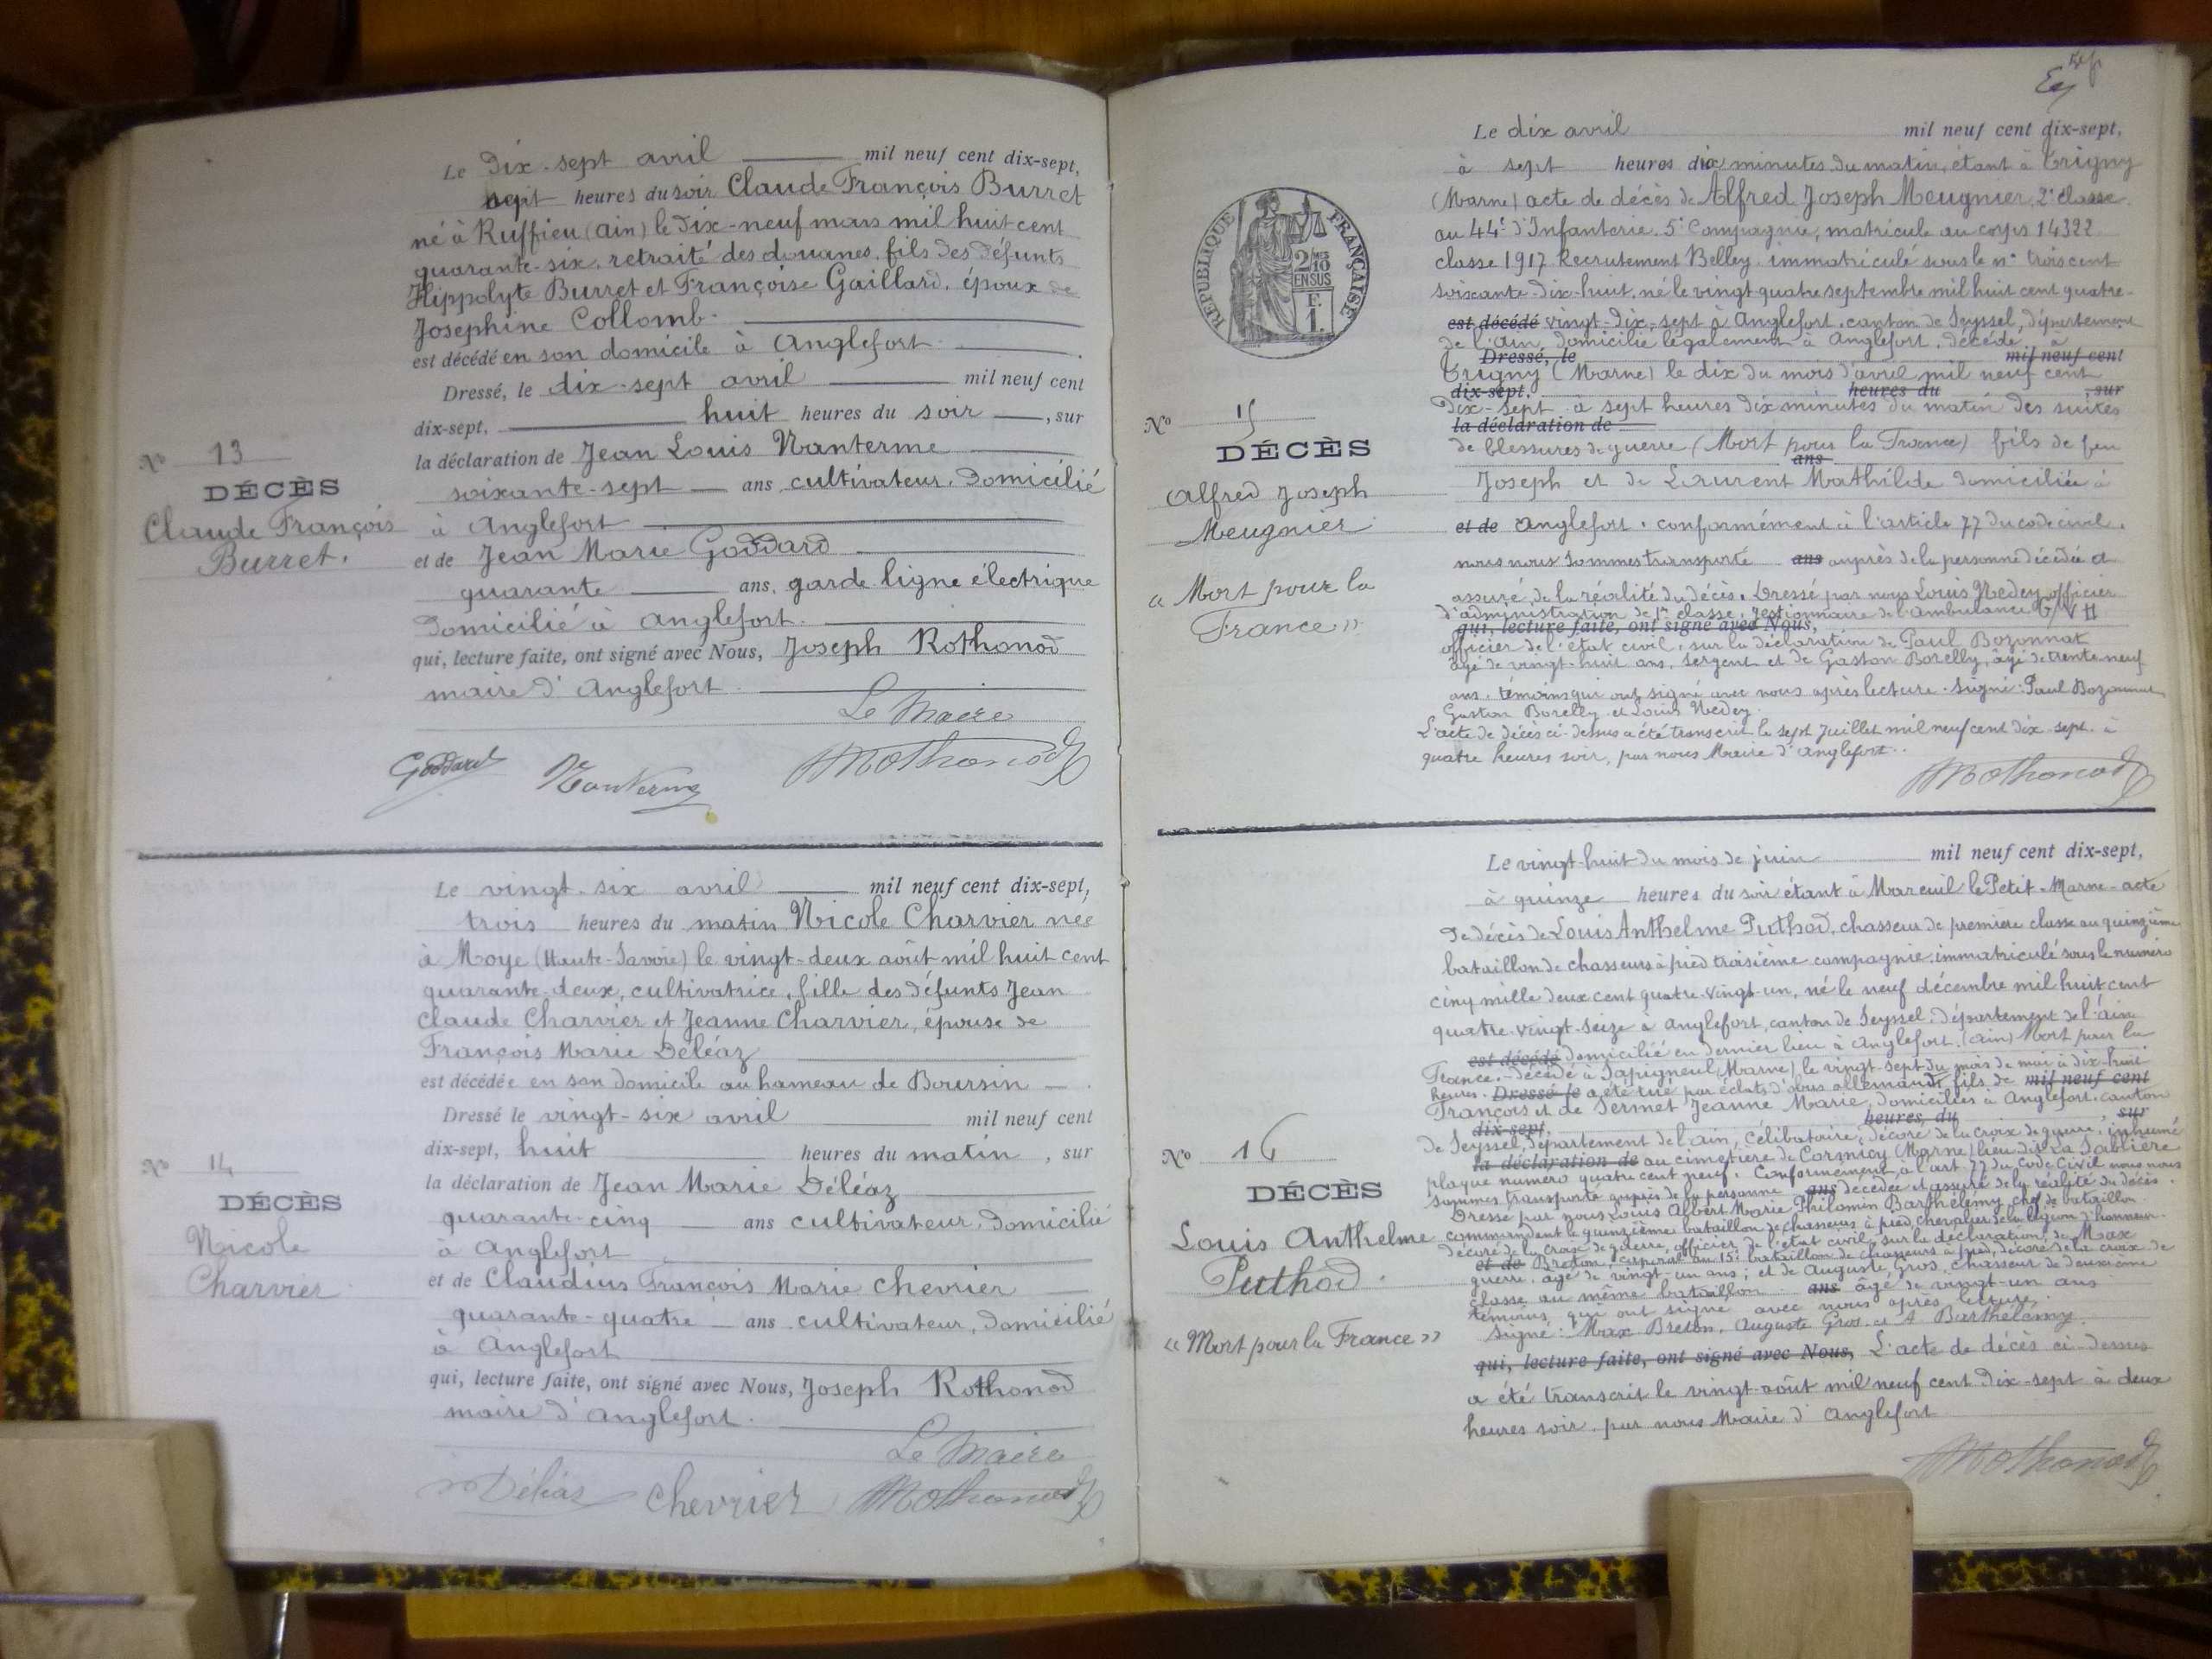 Le Dix-sept avril mil neuf cent dix-sept,
sept heures du soir Claude François Burret
né à Ruffieu (ain) le dix-neuf mars mil huit cent
quarante-six, retraité des douanes, fils des défunts
Hippolyte Burret et Françoise Gaillard, époux de
Josephine Collomb.
est décédé en son domicile à Anglefort.
Dressé, le dix-sept avril mil neuf cent
dix-sept, huit heures du soir, sur
la déclaration de Jean Louis Nanterme
soixante-sept ans, cultivateur, domicilié
à Anglefort
et de Jean Marie Goddard
quarante ans, garde ligne électrique
domicilié à Anglefort.
qui, lecture faite, ont signé avec Nous, Joseph Rothonod
maire d'Anglefort.
Le Maire
Goddard Nanterme JRothonod
No 13
DÉCÈS
Claude François
Burret.
Le vingt-six avril mil neuf cent dix-sept,
trois heures du matin Nicole Charvier née
à Moye (Haute-Savoie) le vingt-deux août mil huit cent
quarante-deux, cultivatrice, fille des défunts Jean
Claude Charvier et Jeanne Charvier, épouse de
François Marie Déléaz
est décédée en son domicile au hameau de Boursin
Dressé le vingt-six avril mil neuf cent
dix-sept, huit heures du matin, sur
la déclaration de Jean Marie Déléaz
quarante-cinq ans cultivateur, domicilié
à Anglefort
et de Claudius François Marie Chevrier
quarante-quatre ans cultivateur, domicilié
à Anglefort
qui, lecture faite, ont signé avec Nous, Joseph Rothonod
maire d'Anglefort.
Le Maire
Déléaz Chevrier JRothonod
No 14
DÉCÈS
Nicole
Charvier
Le dix avril mil neuf cent dix-sept,
à sept heures dix minutes du matin, étant à Trigny
(Marne) acte de décès de Alfred Joseph Meugnier, 2e classe
au 44e d'Infanterie. 5e Compagnie, matricule au corps 14322
classe 1917 Recrutement Belley immatriculé sous le no trois cent
soixante-dix-huit, né le vingt quatre septembre mil huit cent quatre-
est décédé vingt-dix-sept à Anglefort, canton de Seyssel, département
de l'Ain, domicilié légalement à Anglefort, décédé à
Dressé, le mil neuf cent
Trigny (Marne) le dix du mois d'avril mil neuf cent
dix-sept, heures du, sur
dix-sept à sept heures dix minutes du matin des suites
la déclaration de
de blessures de guerre (Mort pour la France) fils de feu
ans
Joseph et de Laurent Mathilde domiciliée à
et de Anglefort. conformément à l'article 77 du code civil,
nous nous sommes transporté ans auprès de la personne décédée et
assuré de la réalité du décès. Dressé par nous Louis Nedey officier
d'administration de 1re classe, gestionnaire de l'ambulance
qui, lecture faite, ont signé avec Nous,
officier de l'état civil, sur la déclaration de Paul Bozonnat
âgé de vingt-huit ans, sergent et de Gaston Borelly, âgé de trente-neuf
ans. témoins qui ont signé avec nous après lecture. Signé: Paul Bozonnat
Gaston Borelly et Louis Nedey.
L'acte de décès ci-dessus a été transcrit le sept Juillet mil neuf cent dix-sept à
quatre heures soir, par nous Maire d'Anglefort.
JRothonod
RÉPUBLIQUE FRANÇAISE
2/10
EN SUS
F.
1.
No 15
DÉCÈS
Alfred Joseph
Meugnier
« Mort pour la
France »
Le vingt-huit du mois de juin mil neuf cent dix-sept,
à quinze heures du soir étant à Mareuil le Petit - Marne - acte
de décès de Louis Anthelme Puthod, chasseur de première classe au quinzième
bataillon de chasseurs à pied troisième compagnie, immatriculé sous le numéro
cinq mille deux cent quatre-vingt-un, né le neuf décembre mil huit cent
quatre-vingt-seize à Anglefort, canton de Seyssel, département de l'ain
est décédé domicilié en dernier lieu à Anglefort. (ain) Mort pour la
France. - décédé à Sapigneul (Marne), le vingt-sept du mois de mai à dix-huit
heures. Dressé le a été tué par éclats d'obus allemands fils de mil neuf cent
François et de Sermet Jeanne Marie, domiciliés à Anglefort. canton
dix-sept, heures, du, sur
de Seyssel, département de l'ain, célibataire, décoré de la croix de guerre, inhumé
la déclaration de au cimetière de Cormicy (Marne) lieu dit La Sablière
plaque numéro quatre cent neuf. Conformément à l'art. 77 du Code Civil nous nous
sommes transporté auprès de la personne ans décédée et assuré de la réalité du décès.
Dressé par nous Louis Albert Marie Philomin Barthélémy chef de bataillon
commandant le quinzième bataillon de chasseurs à pied, chevalier de la légion d'honneur
décoré de la croix de guerre, officier de l'état civil, sur la déclaration, de Max
et de Breton, caporal au 15e bataillon de chasseurs à pied, décoré de la croix de
guerre, âgé de vingt-un ans; et de Auguste Gros, chasseur de deuxième
classe au même bataillon ans âgé de vingt-un ans
témoins, qui ont signé avec nous après lecture.
Signé: Max Breton, Auguste Gros et A Barthélémy.
qui, lecture faite, ont signé avec Nous, L'acte de décès ci-dessus
a été transcrit le vingt-août mil neuf cent dix-sept à deux
heures soir, par nous Maire d'Anglefort
JRothonod
No 16
DÉCÈS
Louis Anthelme
Puthod.
« Mort pour la France »